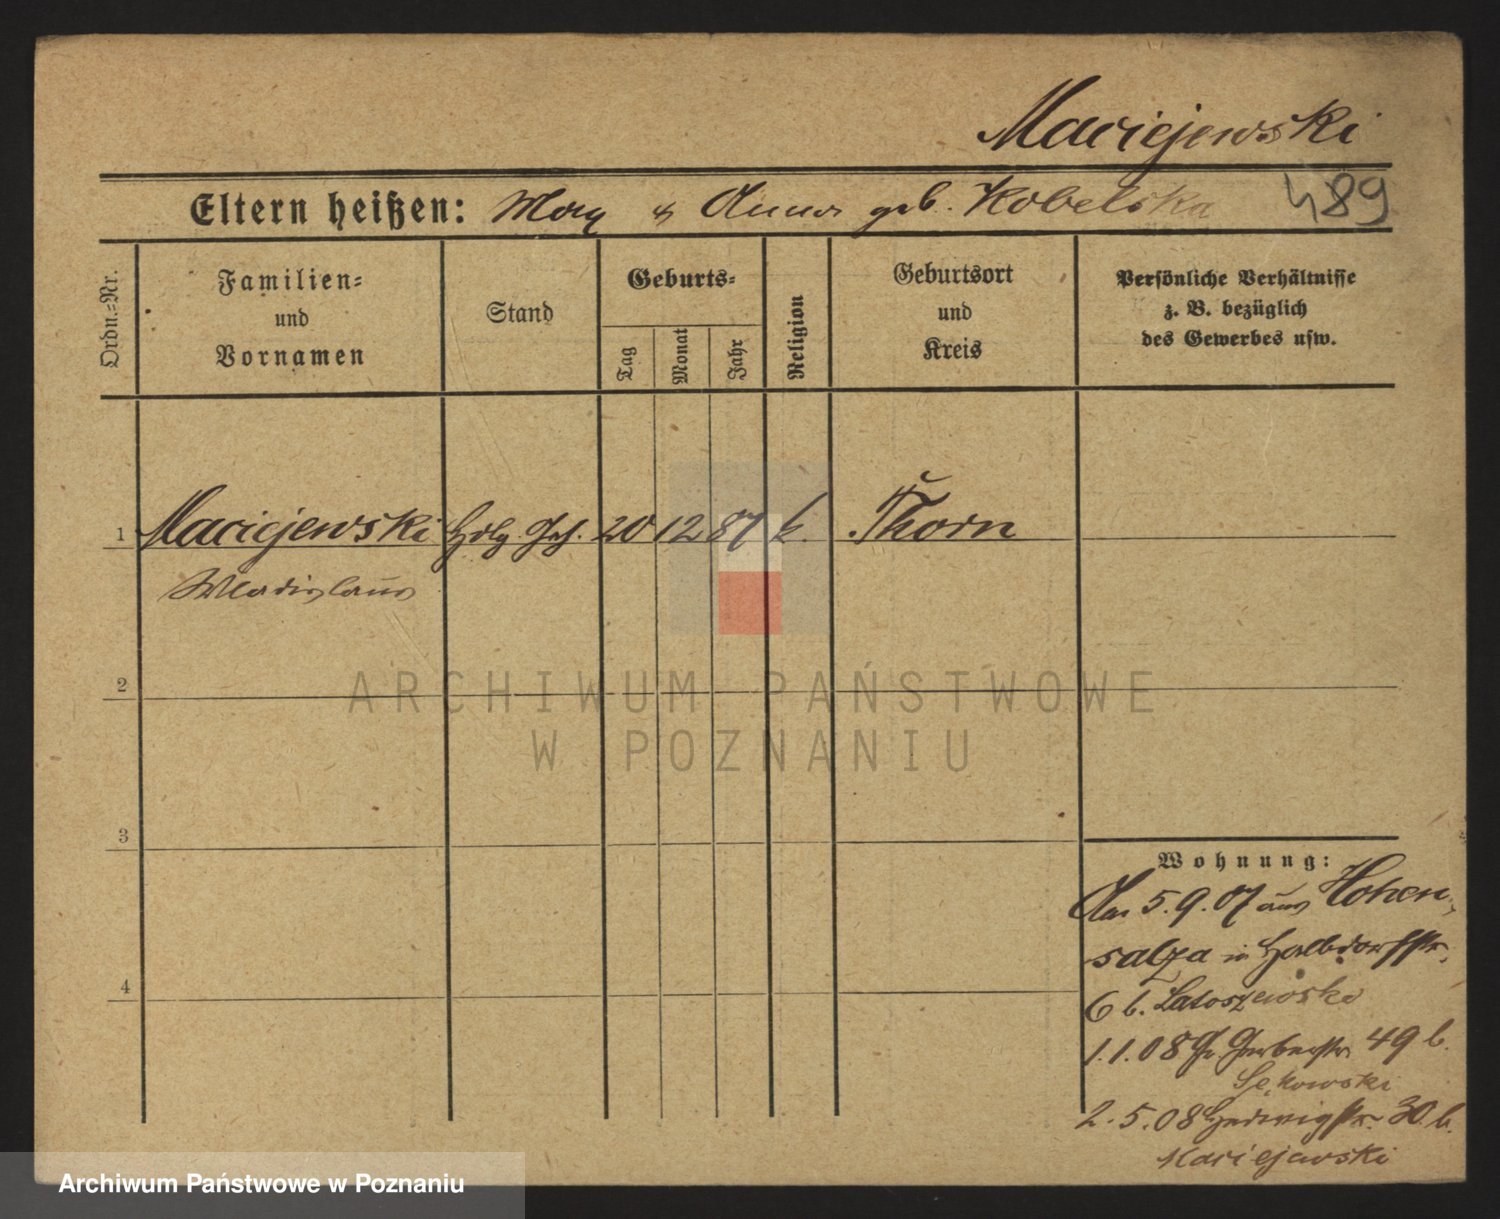 Maciejewski
Eltern heißen: Max & Anna geb. Kobelska 489
Ordn.-Nr.
Familien-
und
Vornamen
Stand
Geburts-
Tag
Monat
Jahr
Religion
Geburtsort
und
Kreis
Persönliche Verhältnisse
z. B. bezüglich
des Gewerbes usw.
1 Maciejewski Hdlg. Geh. 20 12 87 k. Thorn
Wladislaus
2
3
4
Wohnung:
Am 5.9.07 aus Hohen-
salza in Halbdorfstr.
6 b. Latoszewska
1.1.08 Gr. Gerberstr. 49 b.
Sękowski
2.5.08 Hedwigstr. 30 b.
Maciejewski
ARCHIWUM PAŃSTWOWE
W POZNANIU
Archiwum Państwowe w Poznaniu